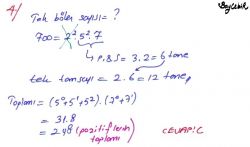 4/ Tek bölen sayısı = ?
700 = 2².5².7
↳ P.B.S = 3.2 = 6 tane
tek tamsayı = 2.6 = 12 tane
Toplamı = (5⁰+5¹+5²).(7⁰+7¹)
= 31.8
= 248 (pozitiflerin toplamı)
CEVAP: C